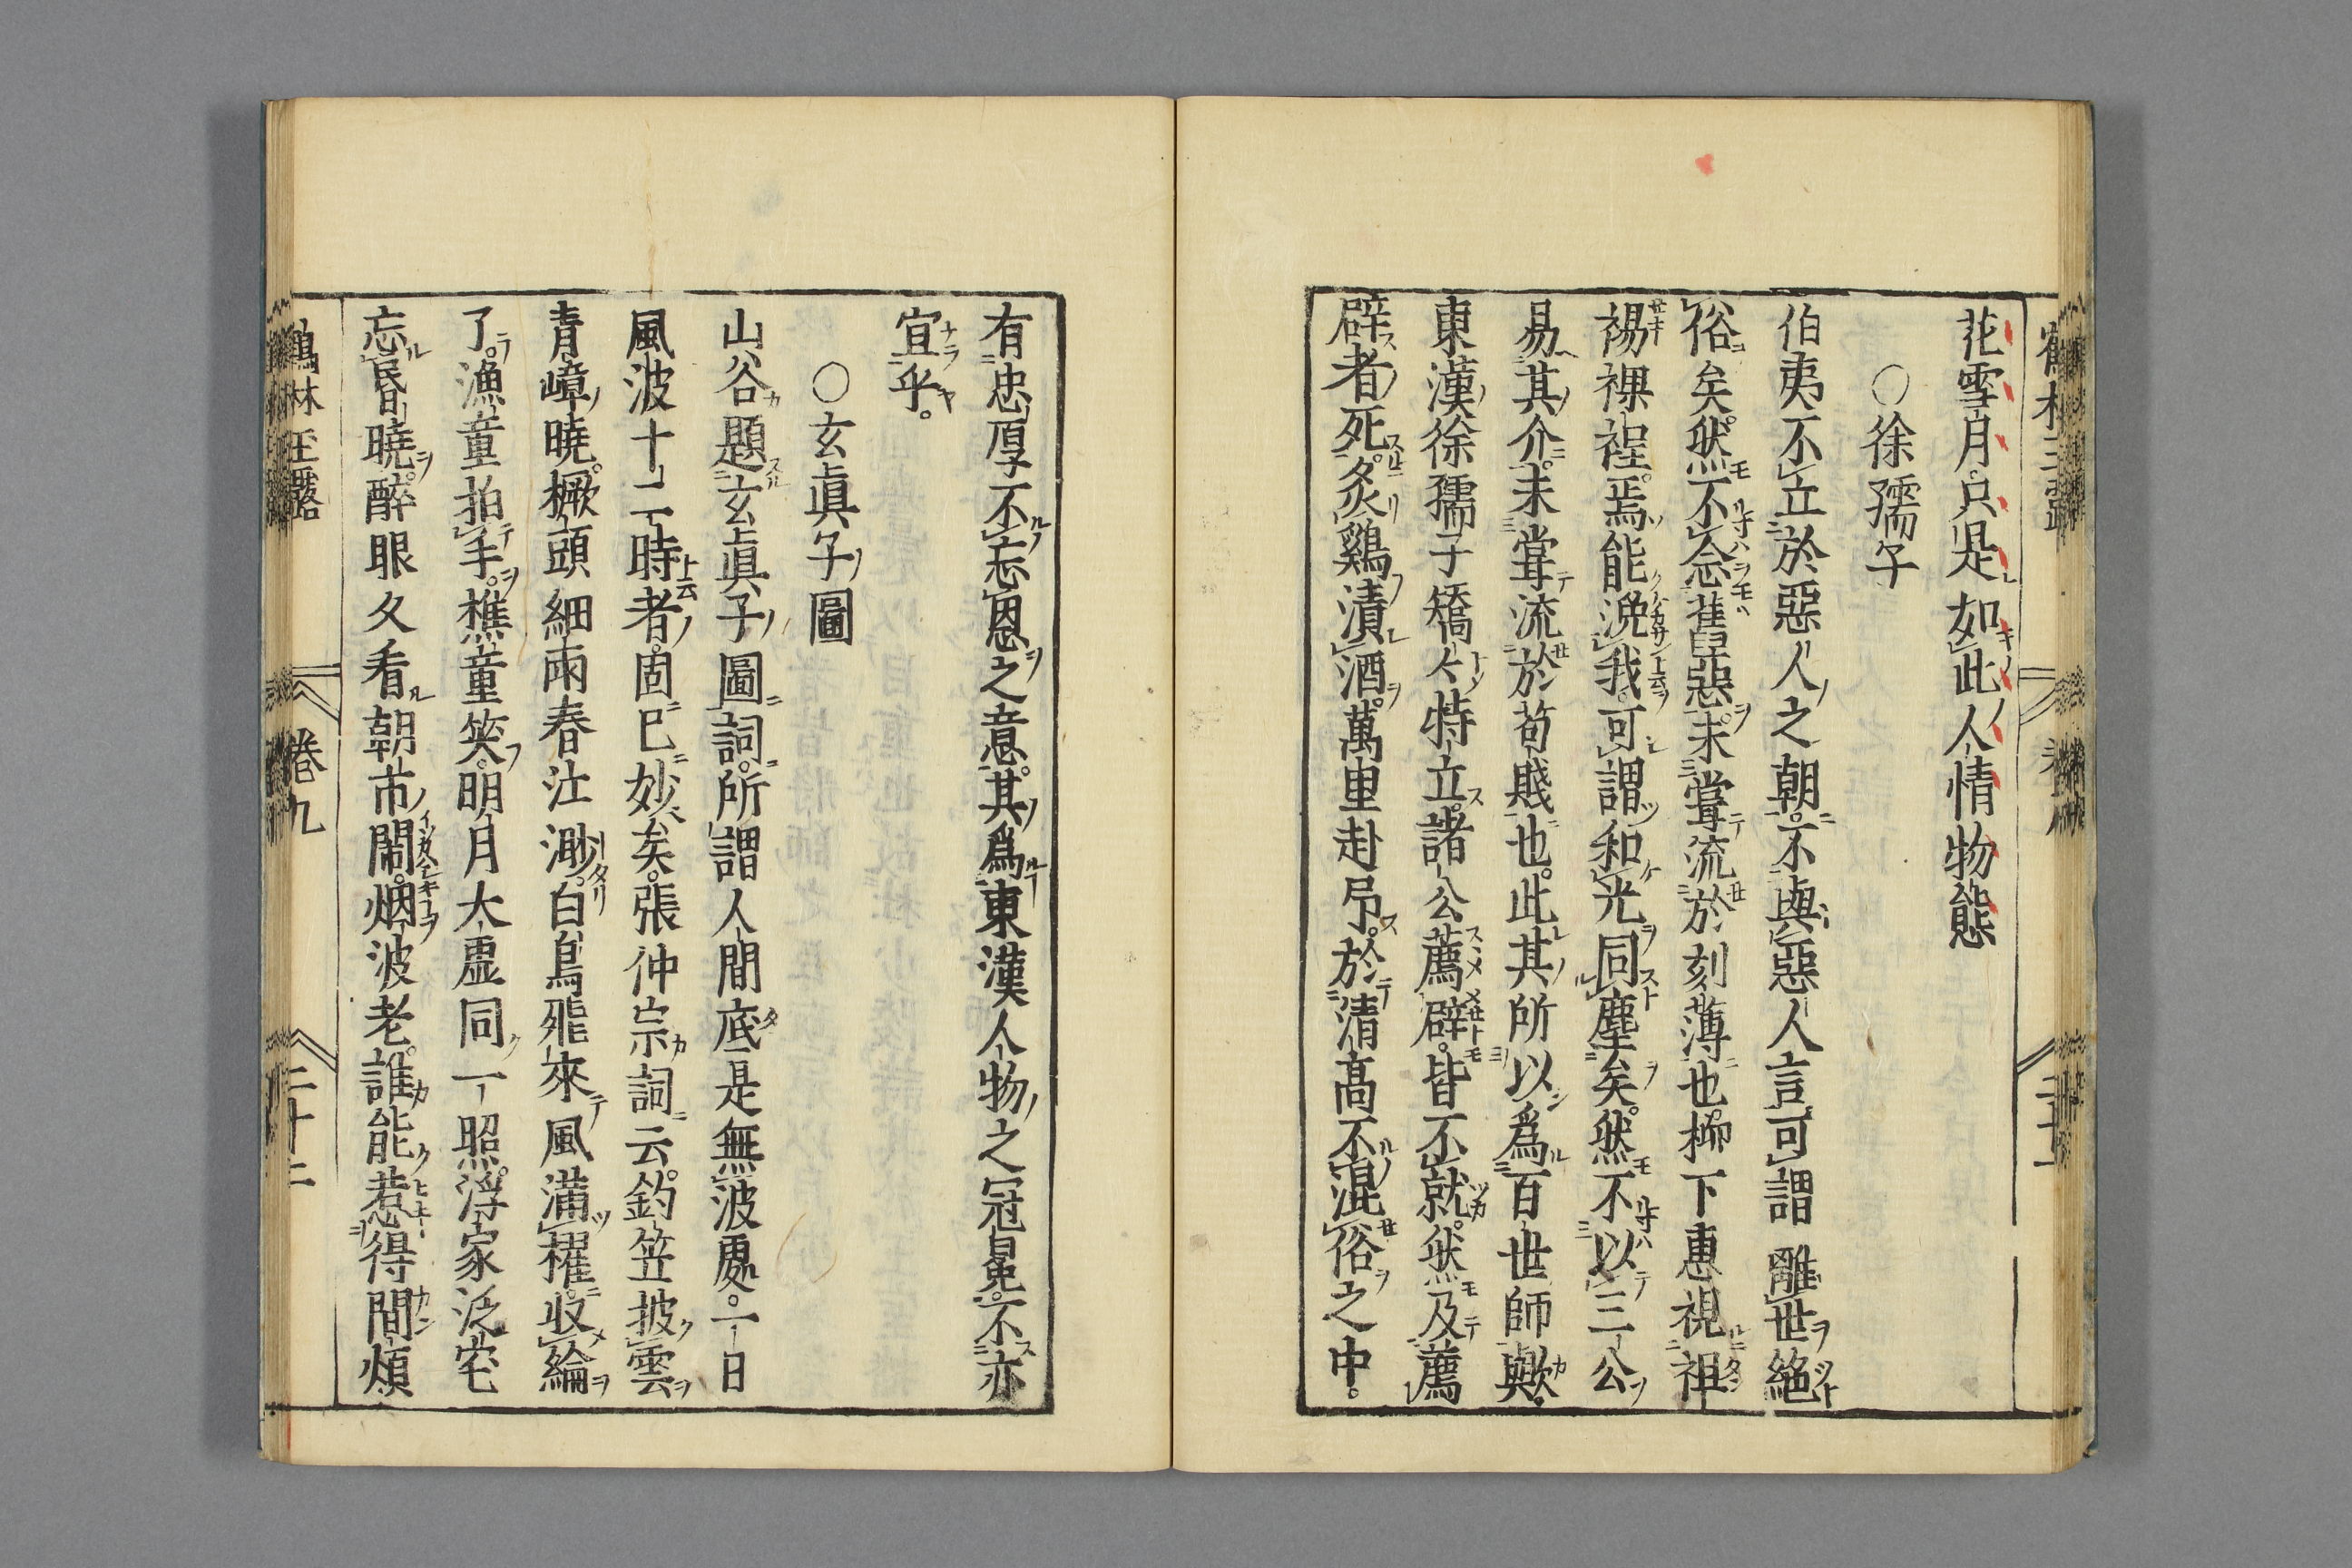 花雪月。只是如此人情物態
○徐孺子
伯夷不立於惡人之朝。不與惡人言可謂離世絕
俗矣。然不念舊惡。未嘗流於刻薄也柳下惠視袒
裼裸裎。焉能浼我。可謂和光同塵矣。然不以三公
易其介。未嘗流於苟賤也。此其所以爲百世師歟。
東漢徐孺子矯々特立。諸公薦辟。皆不就。然及薦
辟者死。炙鷄漬酒。萬里赴吊。於清高不混俗之中。
有忠厚不忘恩之意。其爲東漢人物之冠冕。不亦
宜乎。
○玄眞子圖
山谷題玄眞子圖詞。所謂人間底是無波處。一日
風波十二時者。固已妙矣。張仲宗詞云。釣笠披雲
青嶂曉。橛頭細雨春江渺。白鳥飛來風滿櫂。収綸
了。漁童拍手。樵童笑。明月太虛同一照。浮家泛宅
忘昏曉。醉眼冷看朝市鬧。烟波老。誰能惹得閒煩
鶴林玉露 卷九 二十二